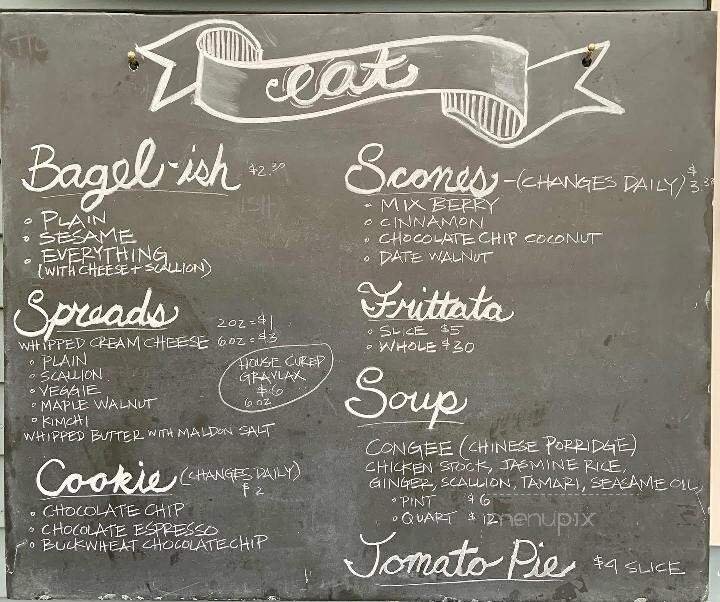 eat
Bagel-ish $2.50
PLAIN
SESAME
EVERYTHING
(WITH CHEESE + SCALLION)
Spreads
2OZ = $1
WHIPPED CREAM CHEESE 6OZ = $3
PLAIN
SCALLION
VEGGIE
MAPLE WALNUT
KIMCHI
WHIPPED BUTTER WITH MALDON SALT
HOUSE CURED
GRAVLAX
$6
6OZ
Cookie (CHANGES DAILY)
$2
CHOCOLATE CHIP
CHOCOLATE ESPRESSO
BUCKWHEAT CHOCOLATE CHIP
Scones - (CHANGES DAILY)
MIX BERRY
CINNAMON
CHOCOLATE CHIP COCONUT
DATE WALNUT
Frittata
SLICE $5
WHOLE $30
Soup
CONGEE (CHINESE PORRIDGE)
CHICKEN STOCK, JASMINE RICE,
GINGER, SCALLION, TAMARI, SEASAME OIL
PINT $6
QUART $12
menupix
Tomato Pie $4 SLICE